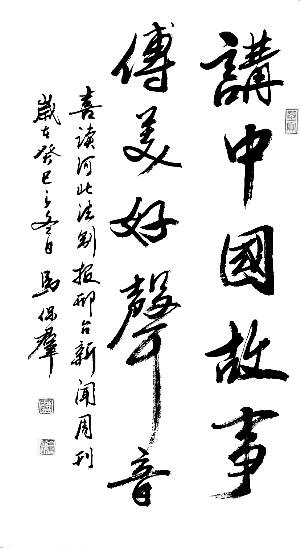 講中國故事
傳美好聲音
喜读河北法制报邢台新闻周刊
歲在癸巳之冬日 馬保群